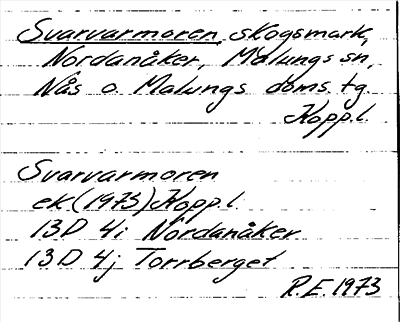 Svarvarmoren, skogsmark,
Nordanåker, Malungs sn,
Nås o. Malungs doms. tg.
Kopp.l.
Svarvarmoren
ek(1973)Kopp.l.
13D 4i Nordanåker
13D 4j Torrberget
R.E. 1973